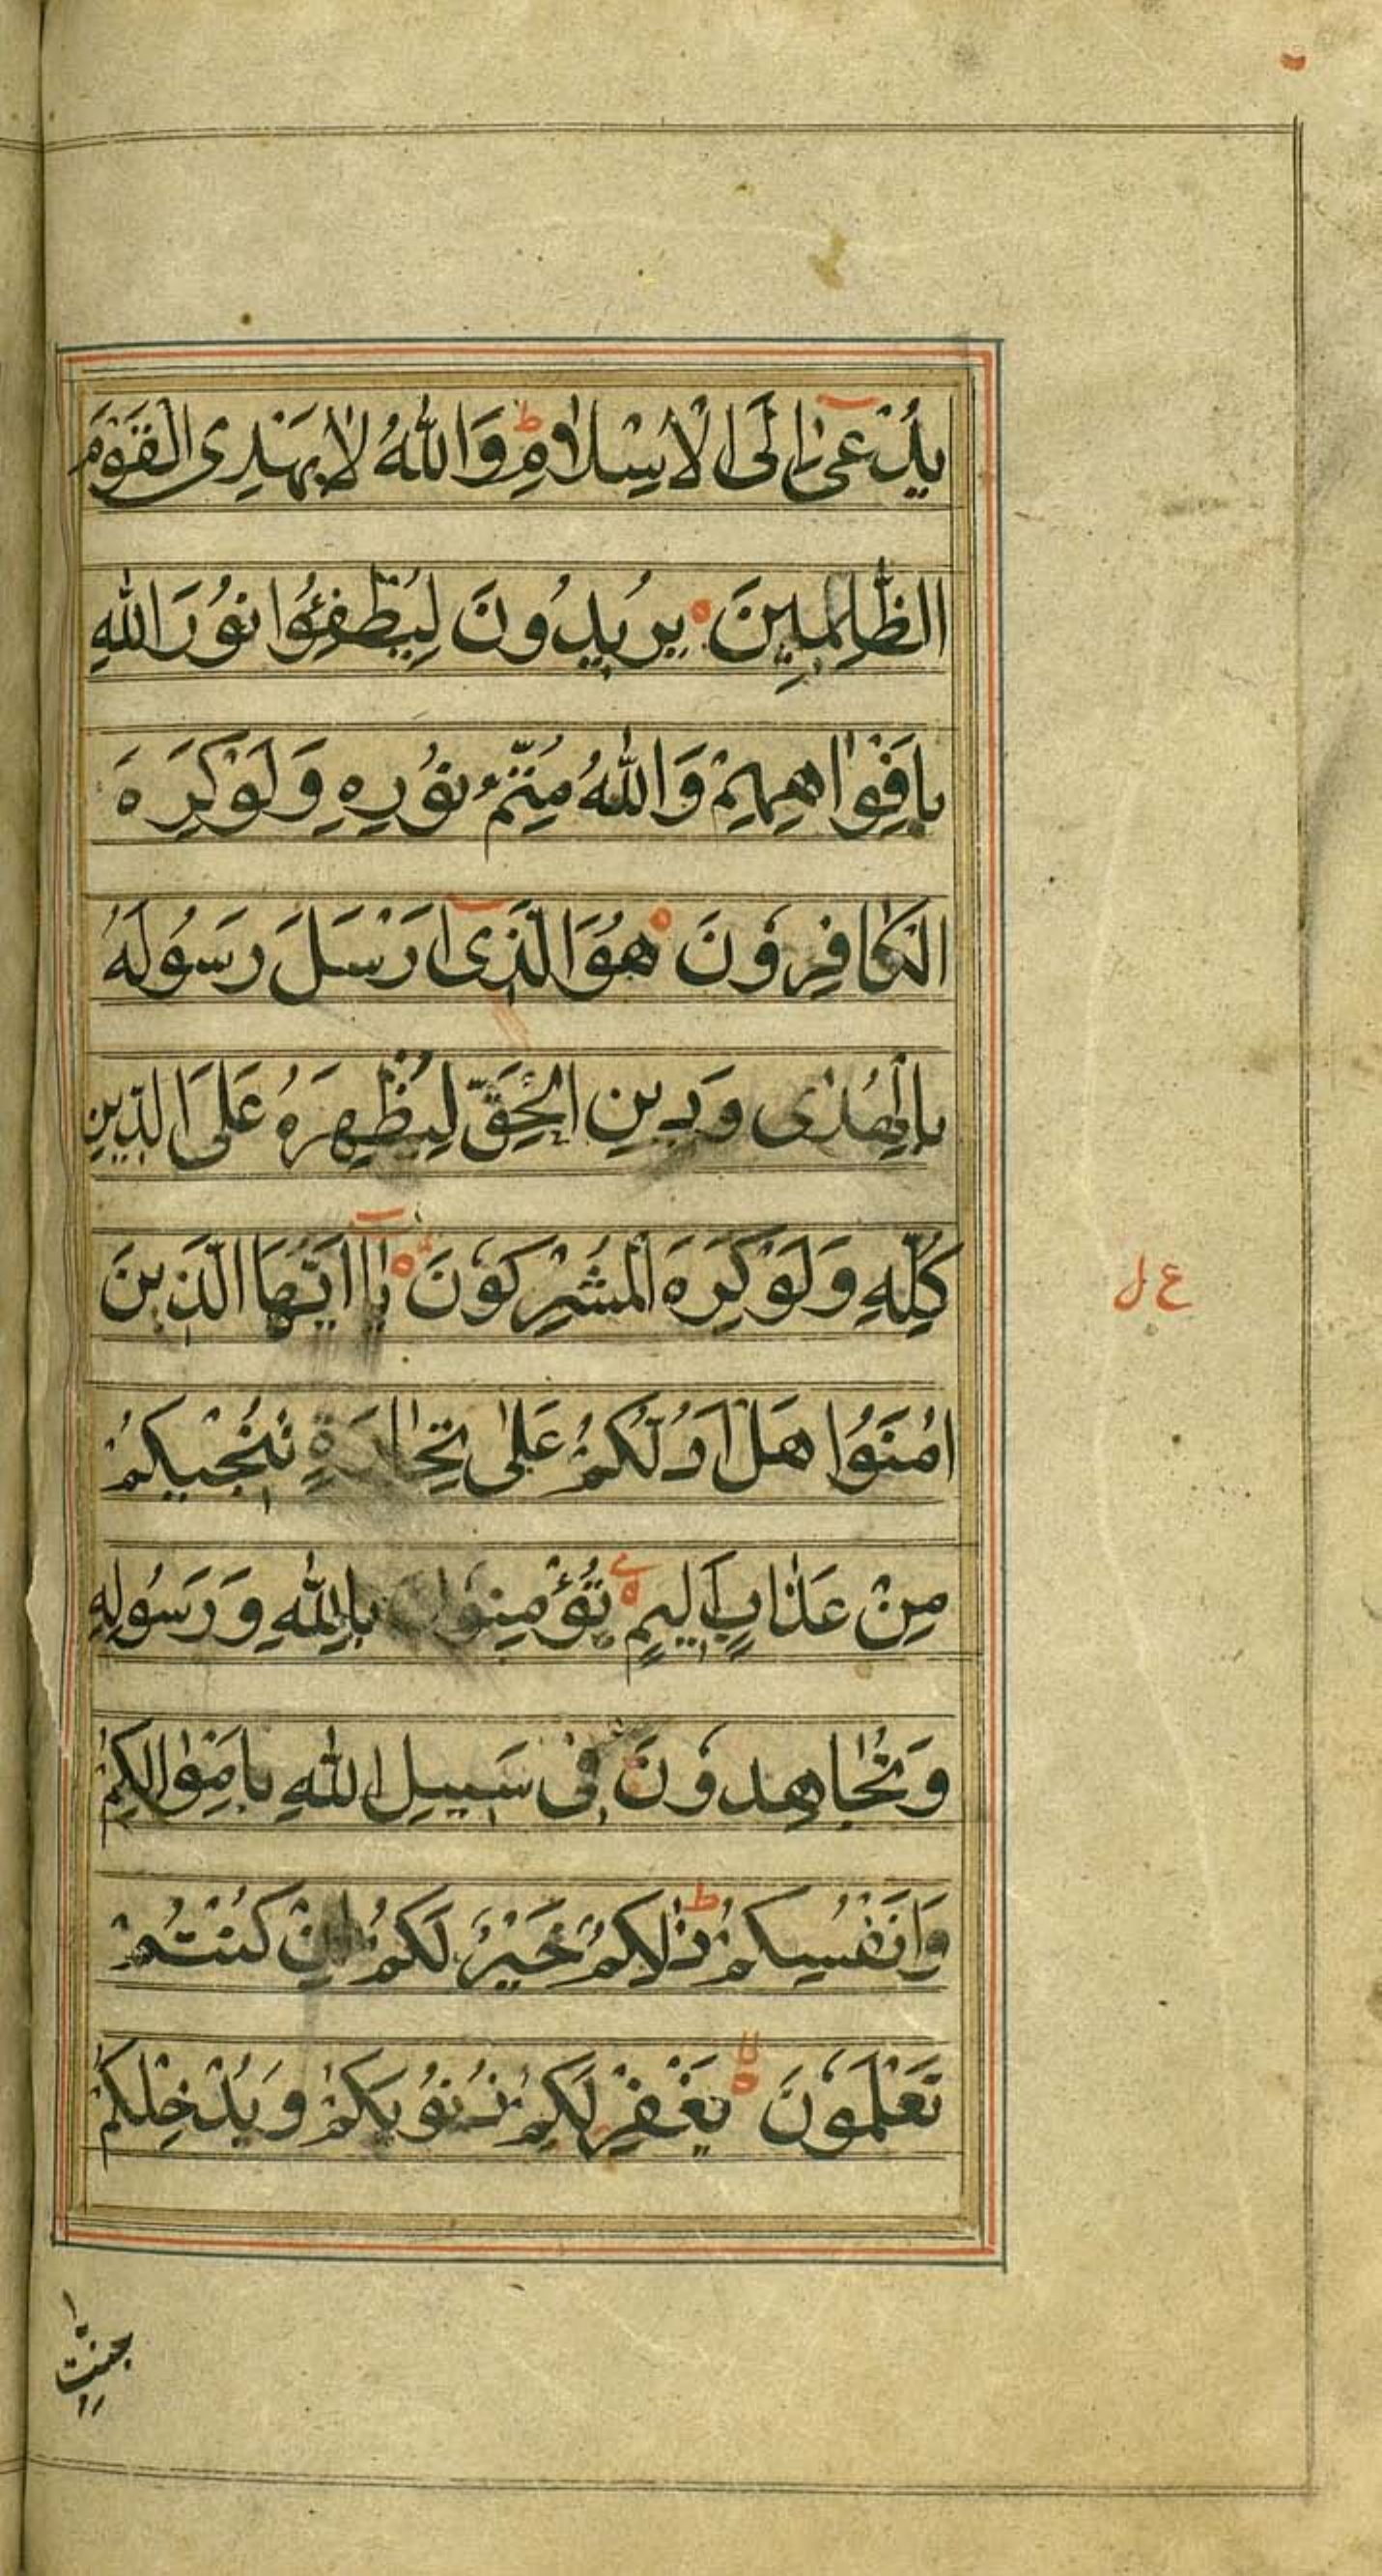 يُدْعٰىٓ اِلَى الْاِسْلَامِ ؕ وَاللّٰهُ لَا يَهْدِى الْقَوْمَ
الظّٰلِمِينَ ۝ يُرِيدُونَ لِيُطْفِئُوا نُوْرَ اللّٰهِ
بِاَفْوَاهِهِمْ وَاللّٰهُ مُتِمُّ نُوْرِهٖ وَلَوْ كَرِهَ
الْكَافِرُوْنَ ۝ هُوَ الَّذِىٓ اَرْسَلَ رَسُوْلَهُ
بِالْهُدٰى وَدِينِ الْحَقِّ لِيُظْهِرَهُ عَلَى الدِّينِ
كُلِّهٖ وَلَوْ كَرِهَ الْمُشْرِكُوْنَ ۝ يَآ اَيُّهَا الَّذِينَ
اٰمَنُوْا هَلْ اَدُلُّكُمْ عَلٰى تِجَارَةٍ تُنْجِيكُمْ
مِنْ عَذَابٍ اَلِيمٍ ۝ تُؤْمِنُوْنَ بِاللّٰهِ وَرَسُوْلِهٖ
وَتُجَاهِدُوْنَ فِى سَبِيلِ اللّٰهِ بِاَمْوَالِكُمْ
وَاَنْفُسِكُمْ ؕ ذٰلِكُمْ خَيْرٌ لَكُمْ اِنْ كُنْتُمْ
تَعْلَمُوْنَ ۝ يَغْفِرْ لَكُمْ ذُنُوْبَكُمْ وَيُدْخِلْكُمْ
جنت